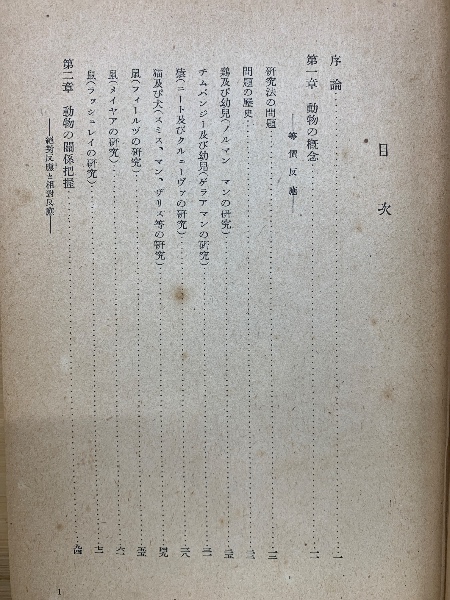 目次
序論
第一章 動物の概念
――等價反應――
研究法の問題
問題の歴史
鷄及び幼兒(ノルマン マンの研究)
チムパンジー及び幼兒(ゲラアマンの研究)
猿(ニート及びクルューヴァの研究)
猫及び犬(スミス、マン、ザリス等の研究)
鼠(フィールヅの研究)
鼠(メイヤアの研究)
鼠(ラッシュレイの研究)
第二章 動物の關係把握
――絕對反應と相對反應――
1